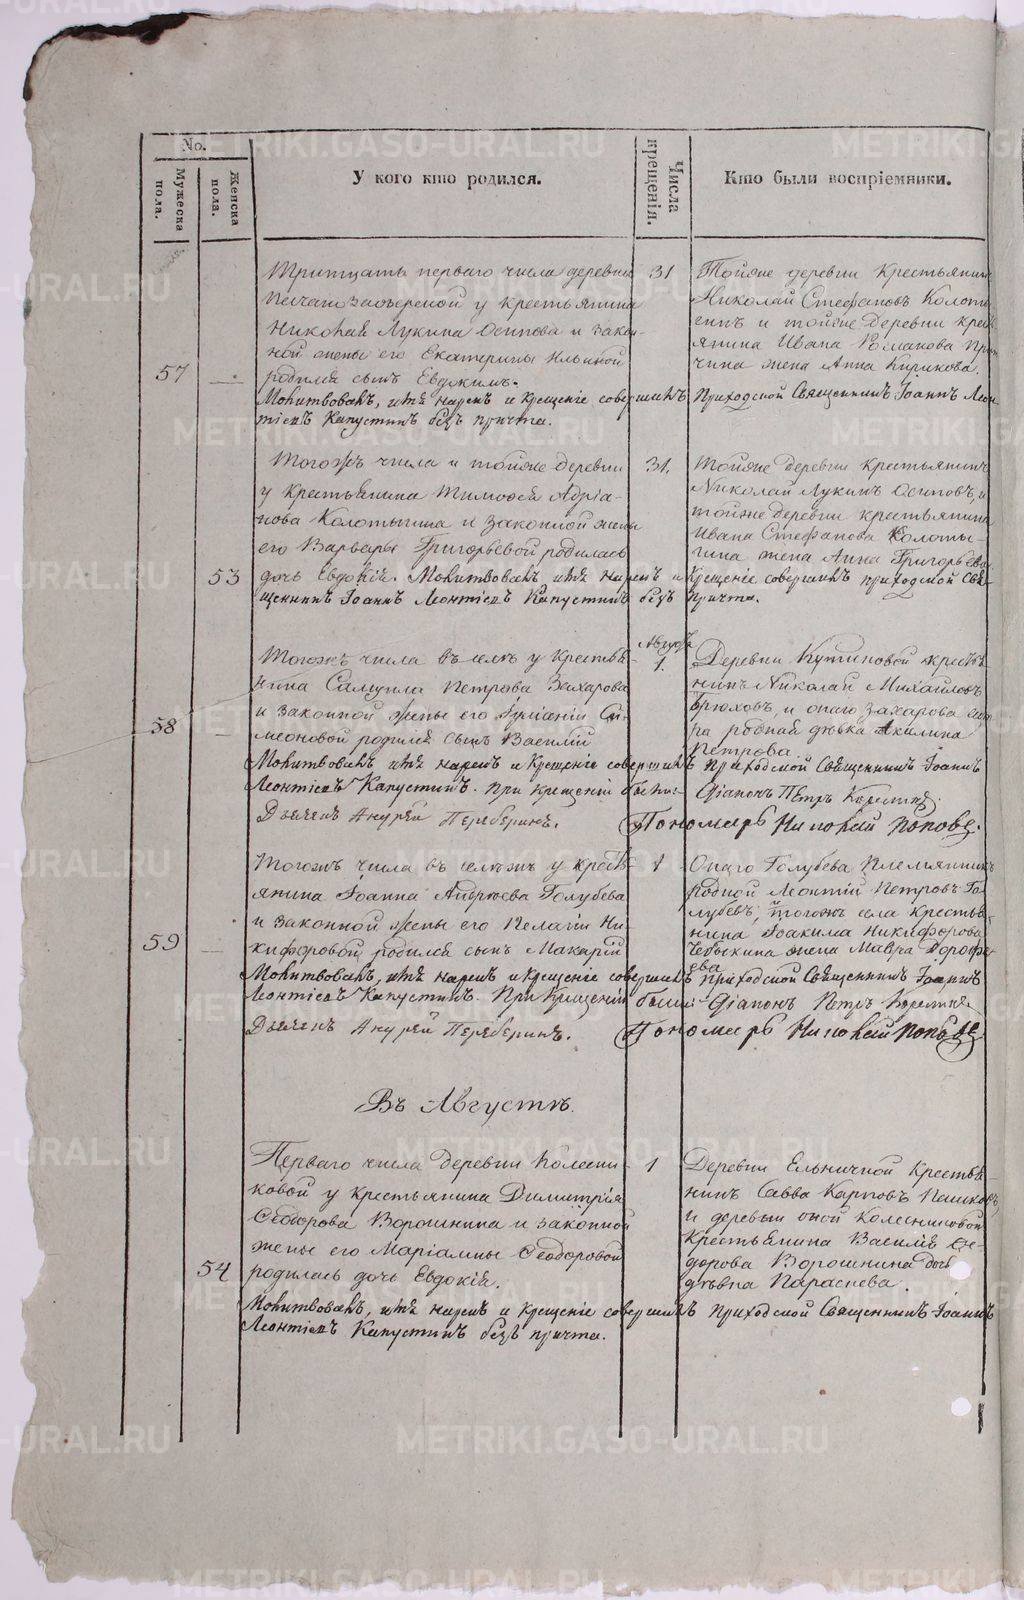 No.
Мужеска пола.
Женска пола.
У кого кто родился.
Числа крещенія.
Кто были воспріемники.
Тритцать перваго числа деревни
31
Тойже деревни крестьянинъ
у крестьянина
Николай Стефановъ
Николая Лукина Осипова и закон-
и тойже деревни крес
ной жены его Екатерины Ильиной
янина Ивана
57
родился сынъ
жена Анна Кирикова.
Молитвовалъ, имя нарекъ и крещеніе совершилъ приходской Священникъ Іоаннъ Леон
тіевъ Капустинъ безъ причта.
Тогожъ числа и тойже деревни
31.
Тойже деревни крестьянинъ
у крестьянина Тимофея Адріа-
Николай Лукинъ Осиповъ, и
нова Колотыгина и законной жены
тойже деревни крестьянина
его Варвары Григорьевой родилась
Ивана Стефанова Колоты-
гина жена Анна Григорьева
53
дочь Евдокія. Молитвовалъ имя нарекъ и крещеніе совершилъ приходской Свя-
щенникъ Іоаннъ Леонтіевъ Капустинъ безъ причта.
Августа
Тогожъ числа въ селѣ у крестья-
1.
Деревни Кутиковой крестья
нина Самуила Петрова Захарова
нинъ Николай Михайловъ
и законной жены его Си-
Брюховъ, и онаго Захарова сест
58
меоновой родился сынъ Василій
ра родная дѣвка Акилина
Петрова
Молитвовалъ имя нарекъ и крещеніе совершилъ приходской Священникъ Іоаннъ
Леонтіевъ Капустинъ. При крещеніи были: Діаконъ Петръ
Дьячекъ Андрей Переберинъ. Пономарь Николай Поповъ.
Тогожъ числа въ селѣжъ у кресть
1
Онаго Голубева племянникъ
янина Іоанна Голубева
родной Леонтій Петровъ Го-
и законной жены его Пелагіи Ни-
лубевъ, и тогожъ села крестья-
нина Іоакима Никифорова
59
кифоровой родился сынъ Макарій
жена Мавра Дорофе
ева
Молитвовалъ, имя нарекъ и крещеніе совершилъ приходской Священникъ Іоаннъ
Леонтіевъ Капустинъ. При крещеніи были: Діаконъ Петръ
Дьячекъ Андрей Переберинъ. Пономарь Николай Поповъ
Въ Августѣ.
Перваго числа деревни Колесни-
1
Деревни Ельничной крестья
ковой у крестьянина Димитрія
нинъ Савва Карповъ Пашков
Феодорова Ворошнина и законной
и деревни оной Колесниковой
жены его Маріамны Феодоровой
крестьянина Василія Фе-
дорова Ворошнина дочь
54
родилась дочь Евдокія.
дѣвка Параскева.
Молитвовалъ, имя нарекъ и крещеніе совершилъ приходской Священникъ Іоаннъ
Леонтіевъ Капустинъ безъ причта.
METRIKI.GASO-URAL.RU